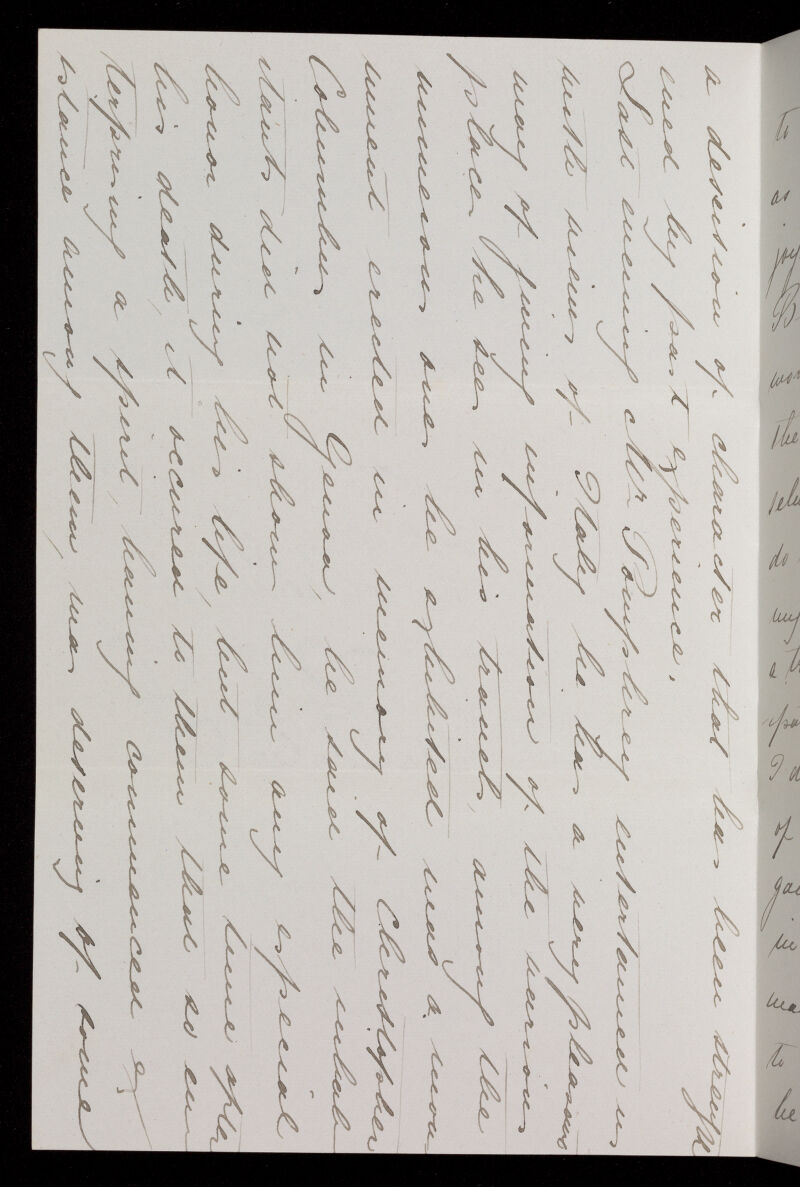 a desision of character that has been strength
ened by past experience.
Last evening Mr Pomphrey entertained us
with views of Italy he has a very pleasant
way of giving information of the various
places he sees in his travels, among the
numerous ones he exhibited was a mon
ument erected in memory of Christopher
Columbus in Genoa, he said the inhab
itants did not show him any especial
honor during his life, but some time after
his death, it occured to them that so en
terprising a spirit, having commenced ex
istance among them, was deserving of some
to
as
joy
B
wor
the
selv
do
my
a
spa
I d
of
goe
in
ma
to
he